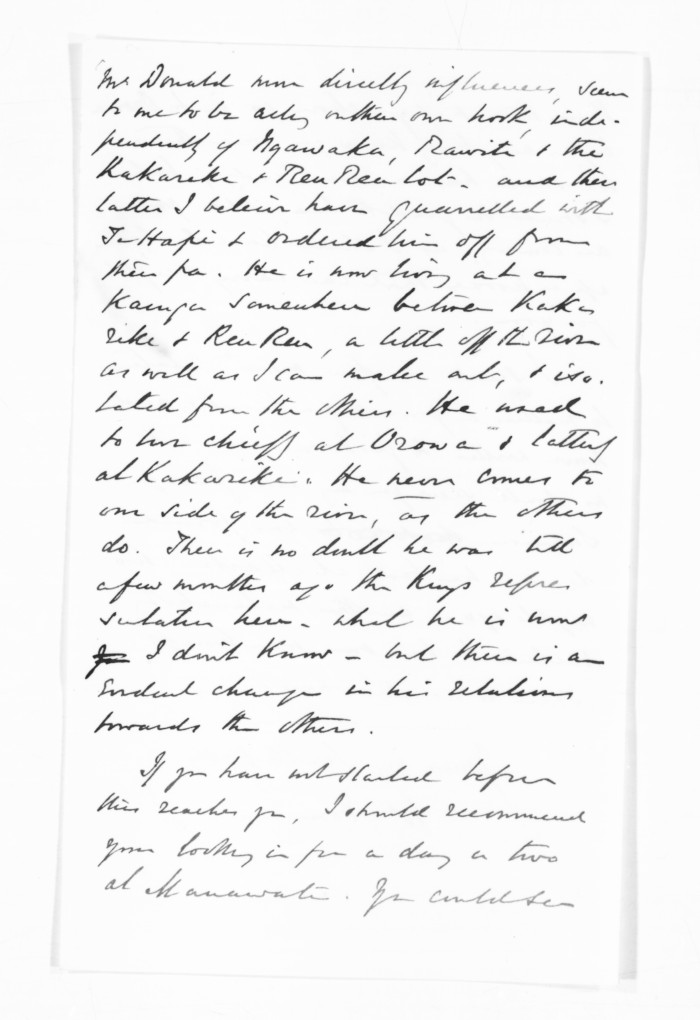 McDonald more directly influences, seem
to me to be acting on their own hook, inde-
pendently of Ngawaka, Rawiti & the
Kakariki & Reu Reu lot - and these
latter I believe have quarrelled with
Te Hapi & ordered him off from
their pa. He is now living at a
Kainga somewhere between Kaka
riki & Reu Reu, a little off the river
as well as I can make out, & iso-
lated from the others. He used
to live chiefly at Orowa & latterly
at Kakariki. He never comes to
our side of the river, as the others
do. There is no doubt he was till
a few months ago the Kings repre
sentative here - what he is now
I don't Know - but there is an
evident change in his relations
towards the others.
If you have not started before
this reaches you, I should recommend
your looking in for a day or two
at Manawatu. You could see